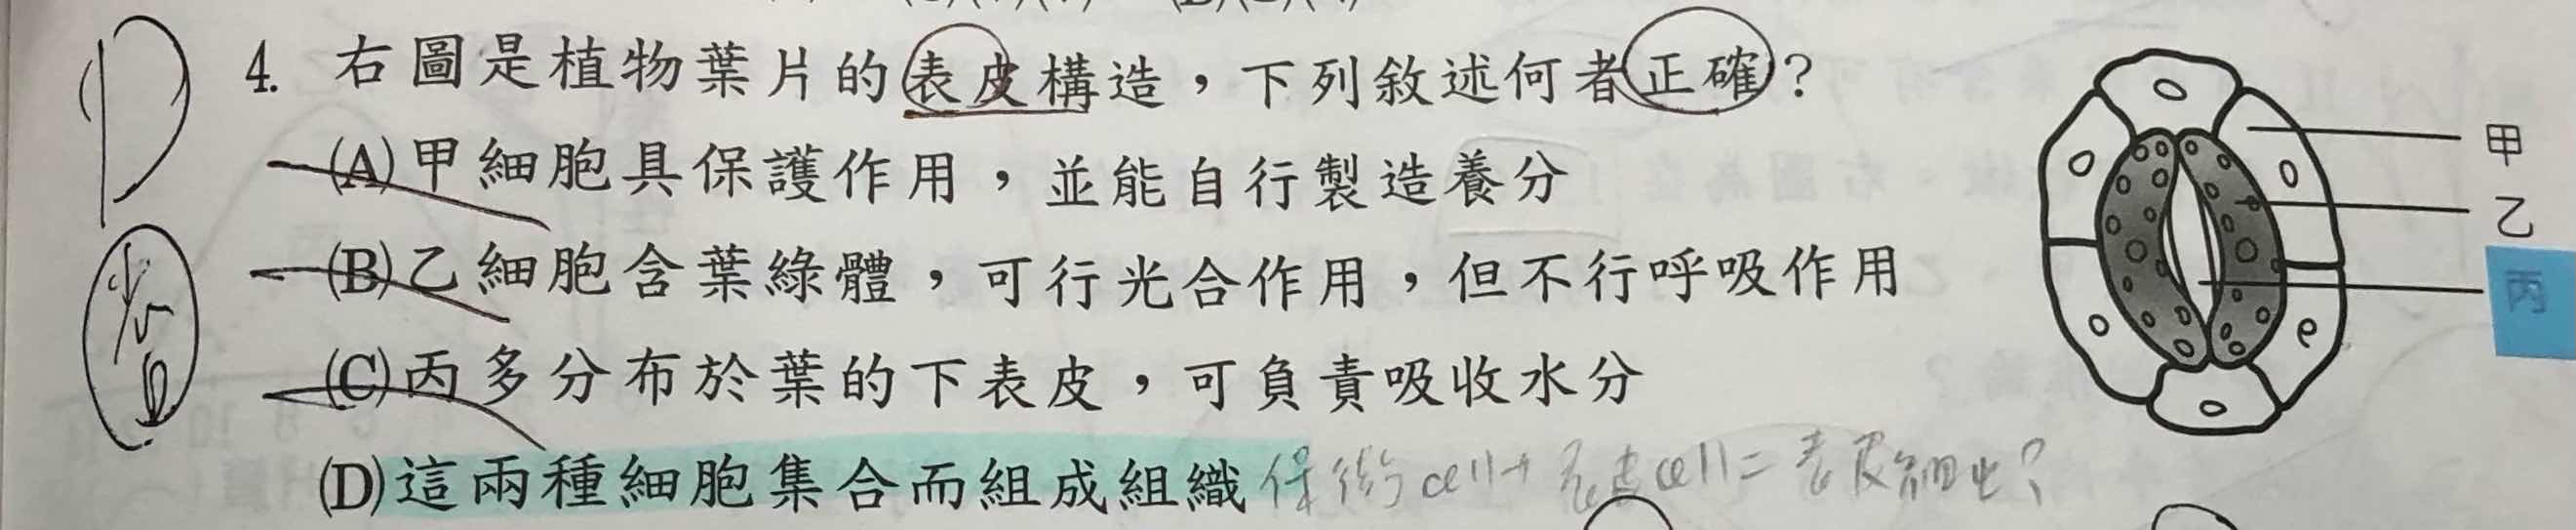 4. 右圖是植物葉片的表皮構造，下列敘述何者正確？
(A)甲細胞具保護作用，並能自行製造養分
(B)乙細胞含葉綠體，可行光合作用，但不行呼吸作用
(C)丙多分布於葉的下表皮，可負責吸收水分
(D)這兩種細胞集合而組成組織 保衛cell+表皮cell=表皮細胞?
甲
乙
丙
D